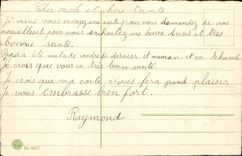 Cher oncle et chère tante
Je viens vous envoyez une carte pour vous demander de vos
nouvelles et pour vous souhaitez une bonne Anné et très
bonne santé.
été malade vendredi dernier et maman et en
Je crois que vous en très bonne santé
Je crois que ma carte vous fera grand plaisir
Je vous embrasse bien fort.
Raymond